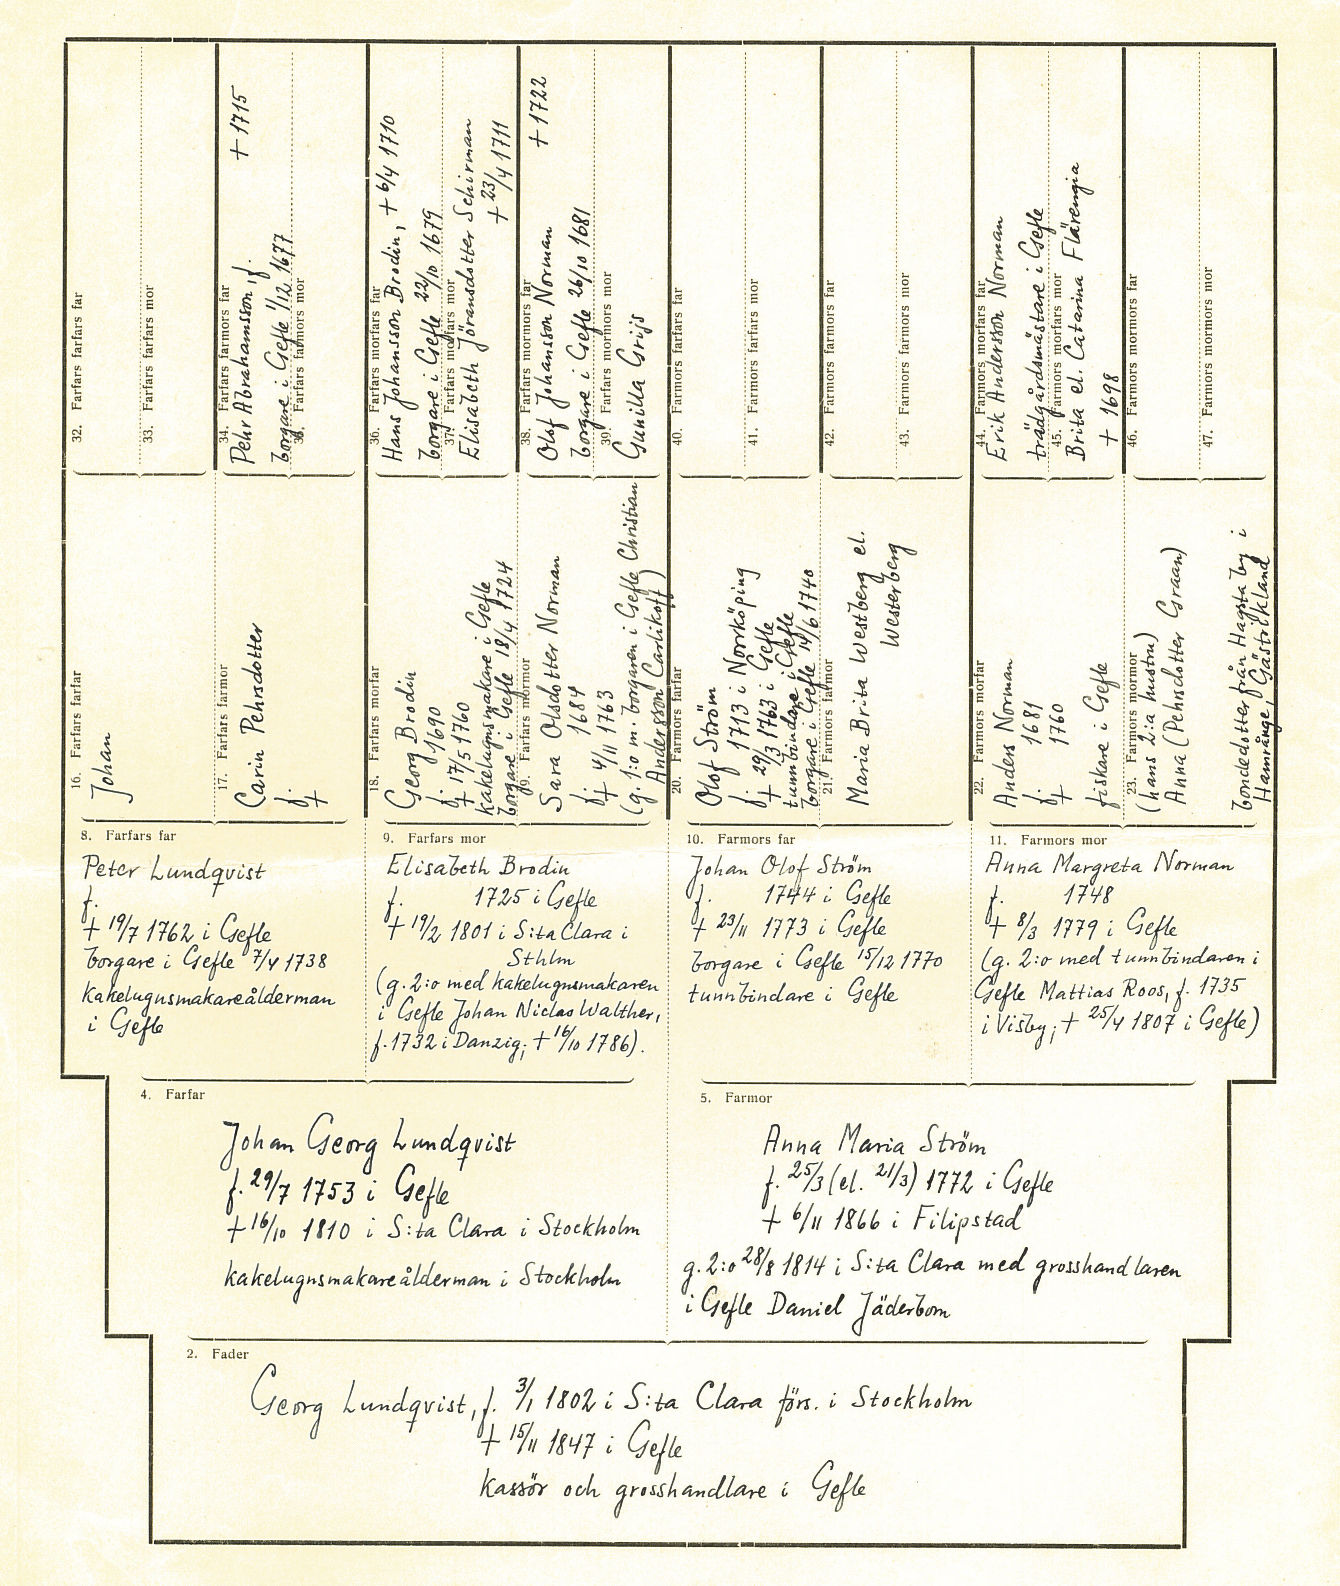 32. Farfars farfars far
33. Farfars farfars mor
34. Farfars farmors far
Pehr Abrahamsson, f. + 1715
borgare i Gefle 1/12 1677
35. Farfars farmors mor
36. Farfars morfars far
Hans Johansson Brodin, + 6/4 1710
borgare i Gefle 22/10 1679
37. Farfars morfars mor
Elisabeth Jöransdotter Schirman
+ 23/4 1711
38. Farfars mormors far
Olof Johansson Norman + 1722
borgare i Gefle 26/10 1681
39. Farfars mormors mor
Gunilla Grijs
40. Farmors farfars far
41. Farmors farfars mor
42. Farmors farmors far
43. Farmors farmors mor
44. Farmors morfars far
Erik Andersson Norman
trädgårdsmästare i Gefle
45. Farmors morfars mor
Brita el. Catarina Flärengia
+ 1698
46. Farmors mormors far
47. Farmors mormors mor
16. Farfars farfar
Johan
17. Farfars farmor
Carin Pehrsdotter
f.
+
18. Farfars morfar
Georg Brodin
f. 1690
+ 17/5 1760
kakelugnsmakare i Gefle
borgare i Gefle 18/4 1724
19. Farfars mormor
Sara Olsdotter Norman
f. 1684
+ 4/11 1763
(g. 1:o m. borgaren i Gefle Christian
Andersson Carlikoff)
20. Farmors farfar
Olof Ström
f. 1713 i Norrköping
+ 29/3 1763 i Gefle
tunnbindare i Gefle
borgare i Gefle 14/6 1740
21. Farmors farmor
Maria Brita Westberg el.
Westerberg
22. Farmors morfar
Anders Norman
f. 1681
+ 1760
fiskare i Gefle
23. Farmors mormor
(hans 2:a hustru)
Anna (Pehrsdotter Graan)
bondedotter från Hagsta by i
Hamrånge, Gästrikland
8. Farfars far
Peter Lundqvist
f.
+ 19/7 1762 i Gefle
borgare i Gefle 7/4 1738
kakelugnsmakareålderman
i Gefle
9. Farfars mor
Elisabeth Brodin
f. 1725 i Gefle
+ 19/2 1801 i S:ta Clara i
Sthlm
(g. 2:o med kakelugnsmakaren
i Gefle Johan Niclas Walther,
f. 1732 i Danzig; + 16/10 1786).
10. Farmors far
Johan Olof Ström
f. 1744 i Gefle
+ 23/11 1773 i Gefle
borgare i Gefle 15/12 1770
tunnbindare i Gefle
11. Farmors mor
Anna Margreta Norman
f. 1748
+ 8/3 1779 i Gefle
(g. 2:o med tunnbindaren i
Gefle Mattias Roos, f. 1735
i Visby; + 25/4 1807 i Gefle)
4. Farfar
Johan Georg Lundqvist
f. 29/7 1753 i Gefle
+ 16/10 1810 i S:ta Clara i Stockholm
kakelugnsmakareålderman i Stockholm
5. Farmor
Anna Maria Ström
f. 25/3 (el. 21/3) 1772 i Gefle
+ 6/11 1866 i Filipstad
g. 2:o 28/8 1814 i S:ta Clara med grosshandlaren
i Gefle Daniel Jäderbom
2. Fader
Georg Lundqvist, f. 3/1 1802 i S:ta Clara förs. i Stockholm
+ 15/11 1847 i Gefle
kassör och grosshandlare i Gefle